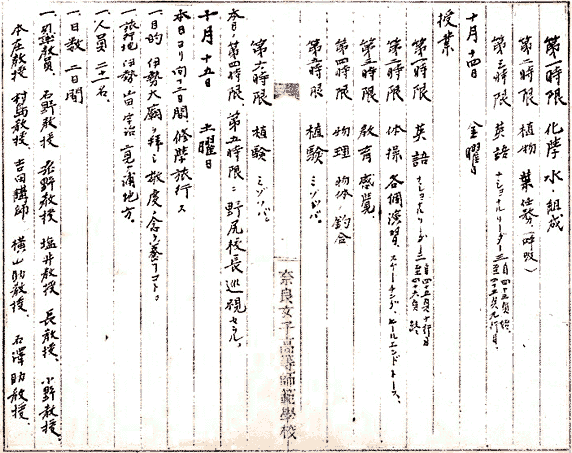 第一時限 化学 水ノ組成
第二時限 植物 葉ノ任務(呼吸)
第三時限 英語 ナショナルリーダー三 自四十三頁終 至四十五頁九行目
十月十四日 金曜日
授業
第一時限 英語 ナショナルリーダー三 自四十五頁十行目 至四十六頁終
第二時限 体操 各個演習、スターチング、ヒールエンドトース、
第三時限 教育 感覚
第四時限 物理 物体ノ釣合
第五時限 植験 ミゾソバ。
第六時限 植験 ミゾソバ。
本日、第四時限、第五時限ニ野尻校長巡視セラル。
十月十五日 土曜日
本日ヨリ向フ二日間修学旅行ス
一目的 伊勢大廟ヲ拝シ敬虔ノ念ヲ養フコト。
一旅行地 伊勢山田宇治二見ヶ浦地方。
一人員 二十一名、
一日数 二日間
一引率教員 石野教授 水野教授 塩井教授 長教授、小野教授、
本庄教授 村島教授 吉田講師 横山助教授、石澤助教授、
奈良女子高等師範學校